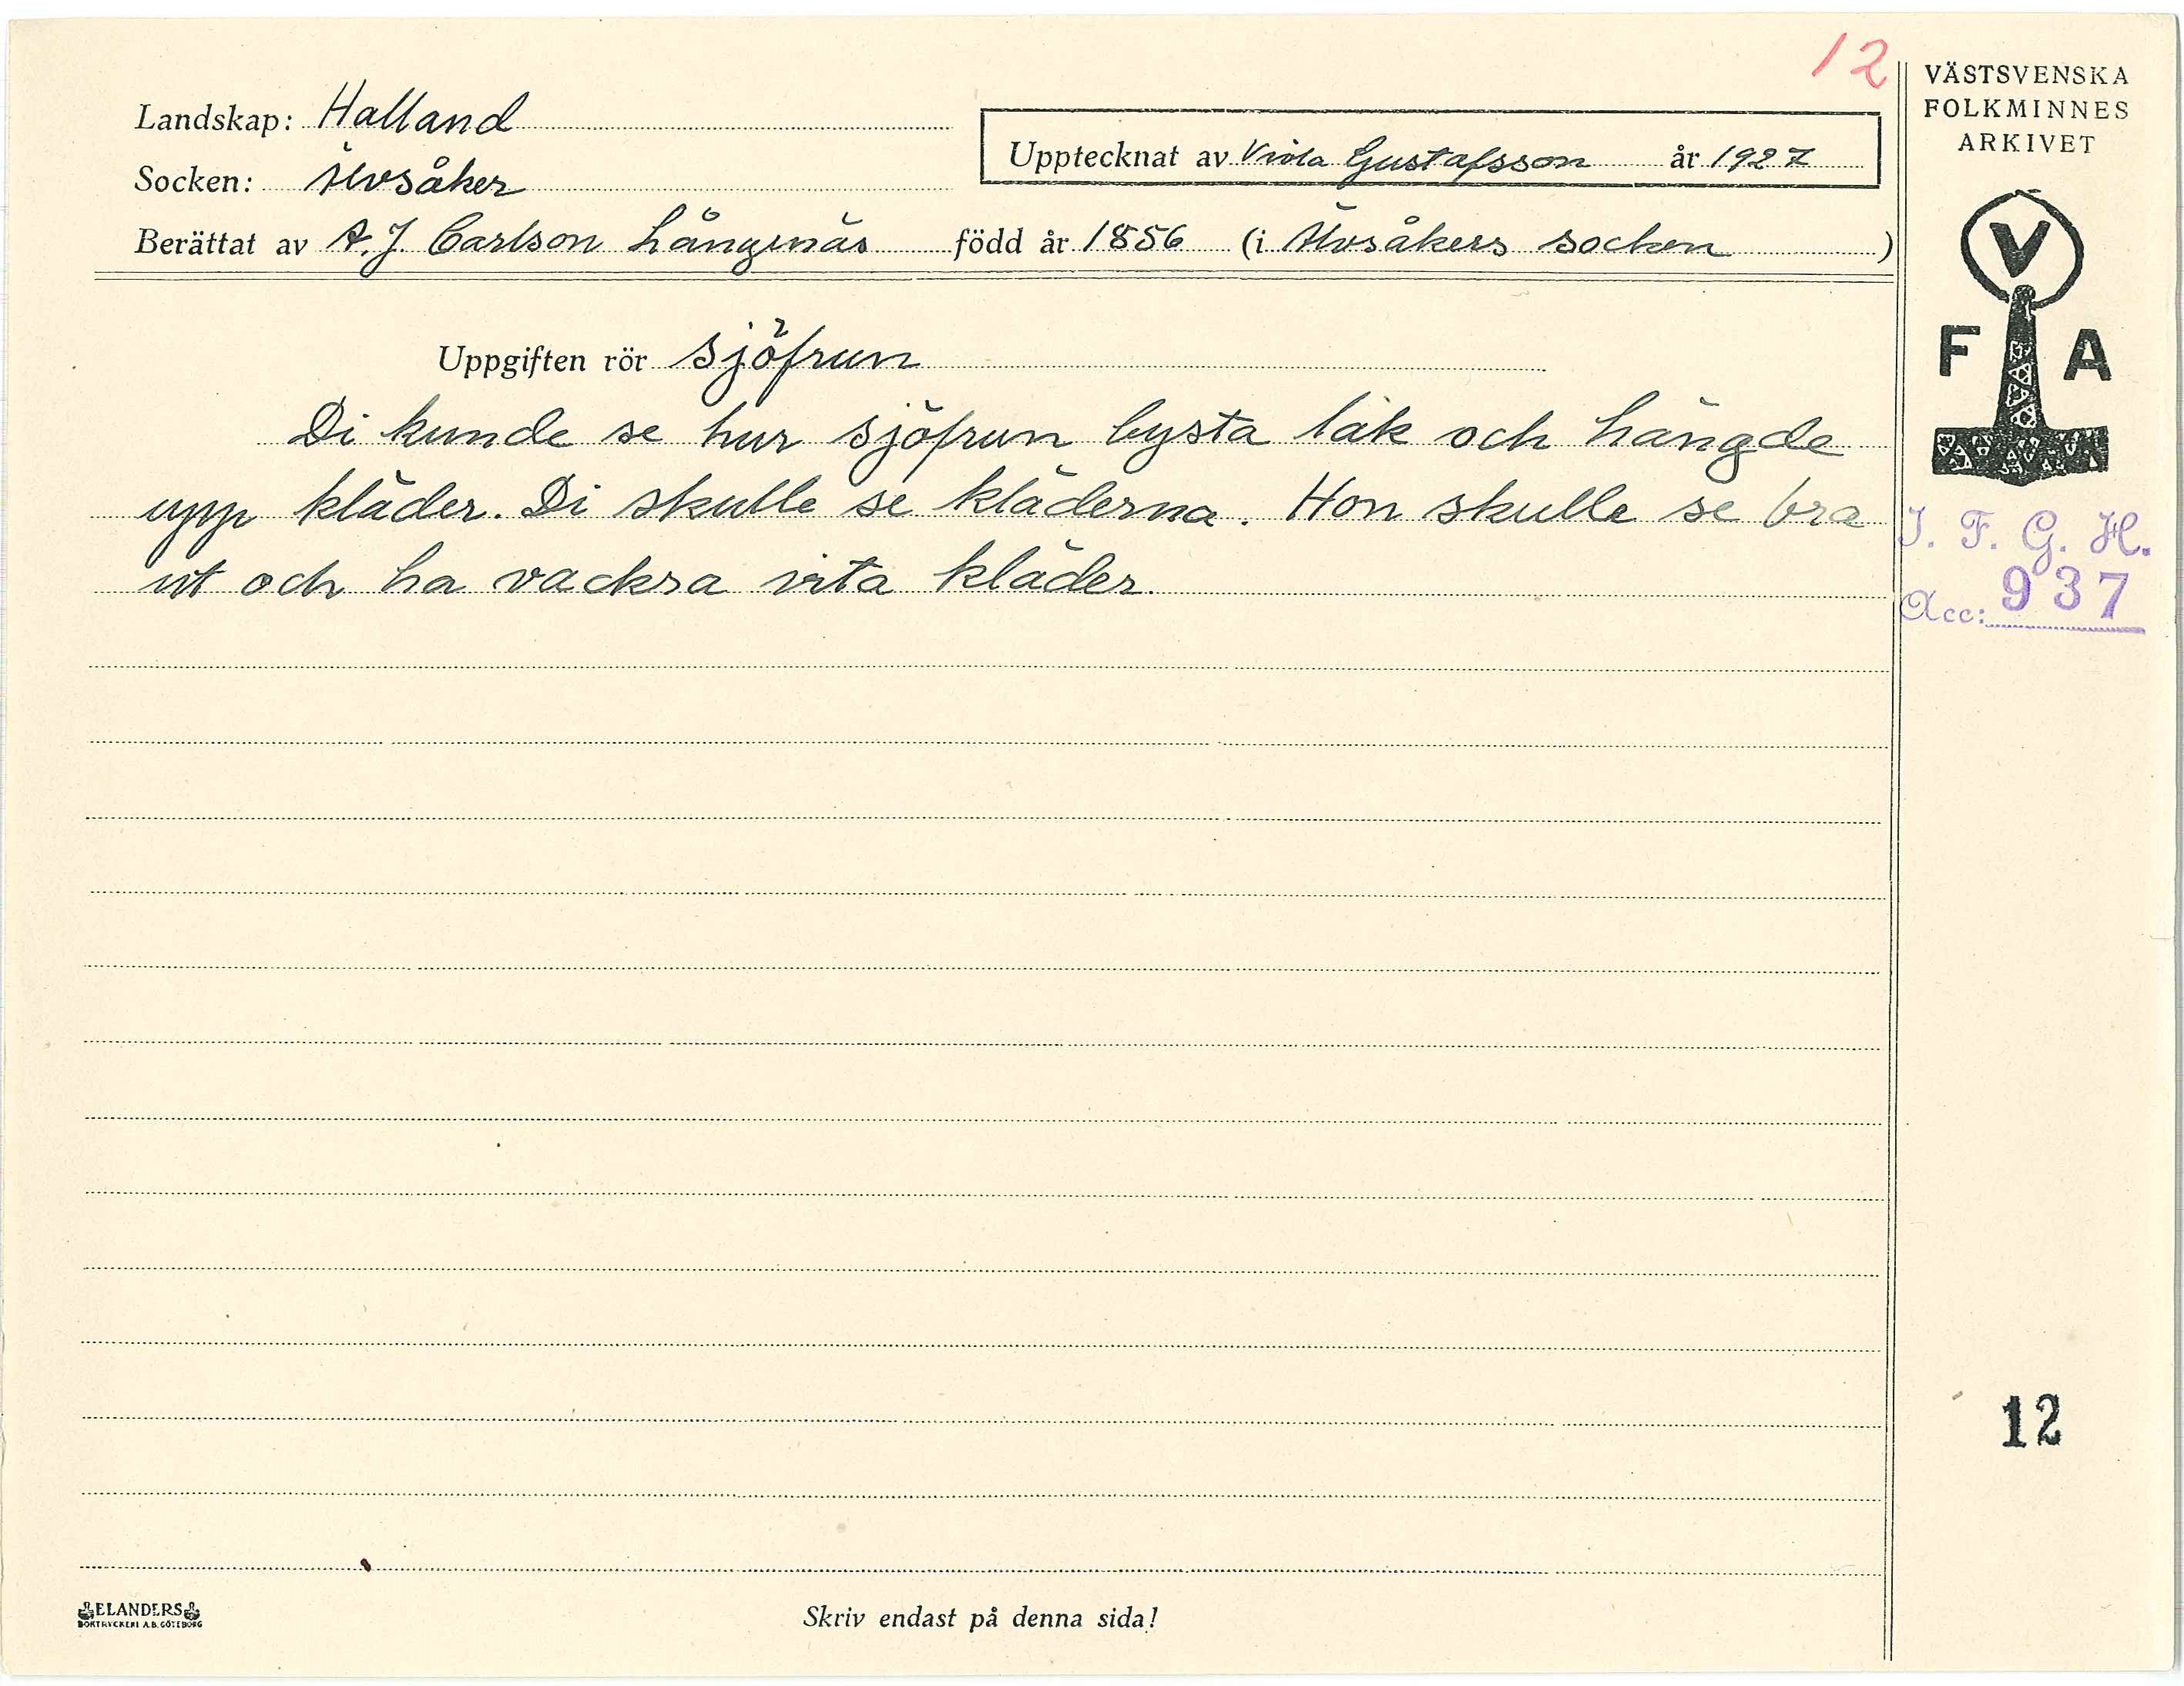 12
VÄSTSVENSKA
FOLKMINNES
ARKIVET
Landskap: Halland
Upptecknat av Viola Gustafsson år 1927
Socken: Älvsåker
Berättat av A. J. Carlson Långenäs född år 1856 (i Älvsåkers socken)
V
F A
Uppgiften rör Sjöfrun
Di kunde se hur sjöfrun bysta lak och hängde
upp kläder. Di skulle se kläderna. Hon skulle se bra
ut och ha vackra vita kläder.
I. F. G. H.
Acc: 937
12
ELANDERS
BOKTRYCKERI A.B. GÖTEBORG
Skriv endast på denna sida!